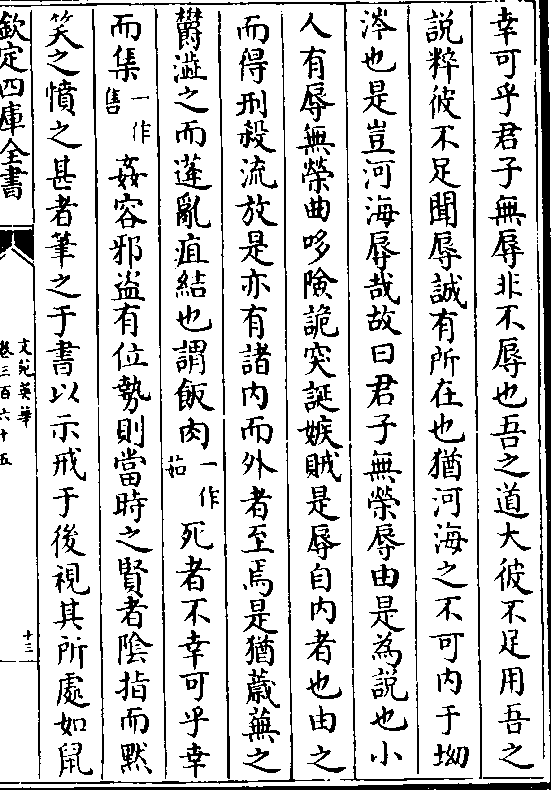 幸可乎君子無辱非不辱也吾之道大彼不足用吾之
說粹彼不足聞辱誠有所在也猶河海之不可内于坳
涔也是豈河海辱哉故曰君子無榮辱由是為説也小
人有辱無榮曲哆險詭突誕嫉賊是辱自内者也由之
而得刑殺流放是亦有諸内而外者至焉是猶薉蕪之
欝澁之而蓬亂疽結也謂飯肉一作茹死者不幸可乎幸
而集一作售姦容邪盗有位勢則當時之賢者陰指而黙
笑之憤之甚者筆之于書以示戒于後視其所處如鼠
欽定四庫全書
文苑英華
卷三百六十五
十三